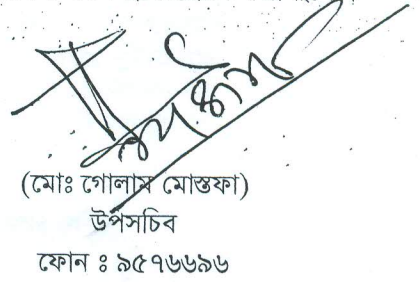 (মোঃ গোলাম মোস্তফা)
উপসচিব
ফোন ঃ ৯৫৭৬৬৯৬